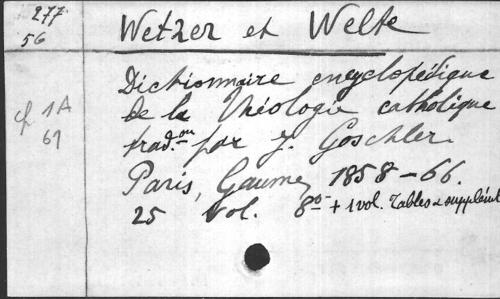 277
56
Wetzer et Welte
cf 1A
61
Dictionnaire encyclopédique
de la théologie catholique
trad.on par J. Goschler.
Paris, Gaume, 1858-66.
25 vol. 8o + 1 vol. Tables & supplémt